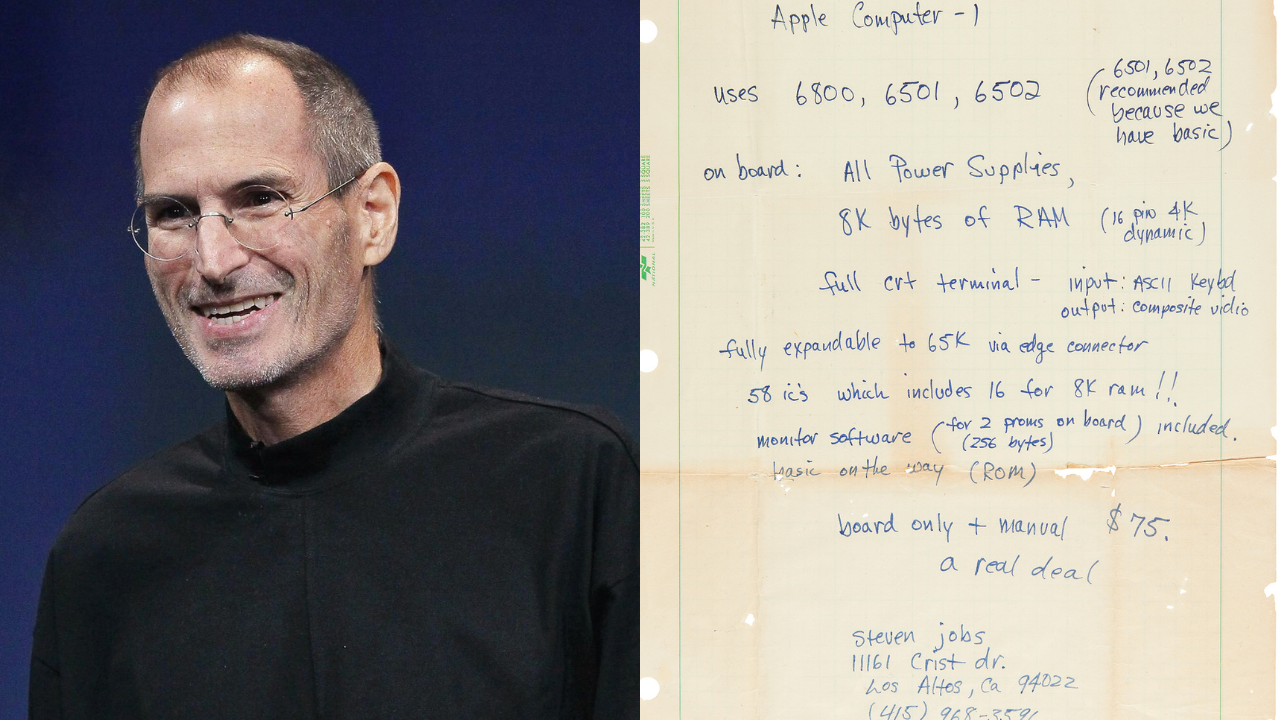 Apple Computer-1
uses 6800, 6501, 6502 (6501, 6502
recommended
because we
have basic)
on board: All Power Supplies,
8K bytes of RAM (16 pin 4K
dynamic)
full crt terminal - input: ASCII Keybd
output: composite vidio
fully expandable to 65K via edge connector
58 ic's which includes 16 for 8K ram!!
monitor software (for 2 proms on board) included.
(256 bytes)
basic on the way (ROM)
board only + manual $75.
a real deal
steven jobs
11161 Crist dr.
Los Altos, Ca 94022
(415) 968-3596
NATIONAL